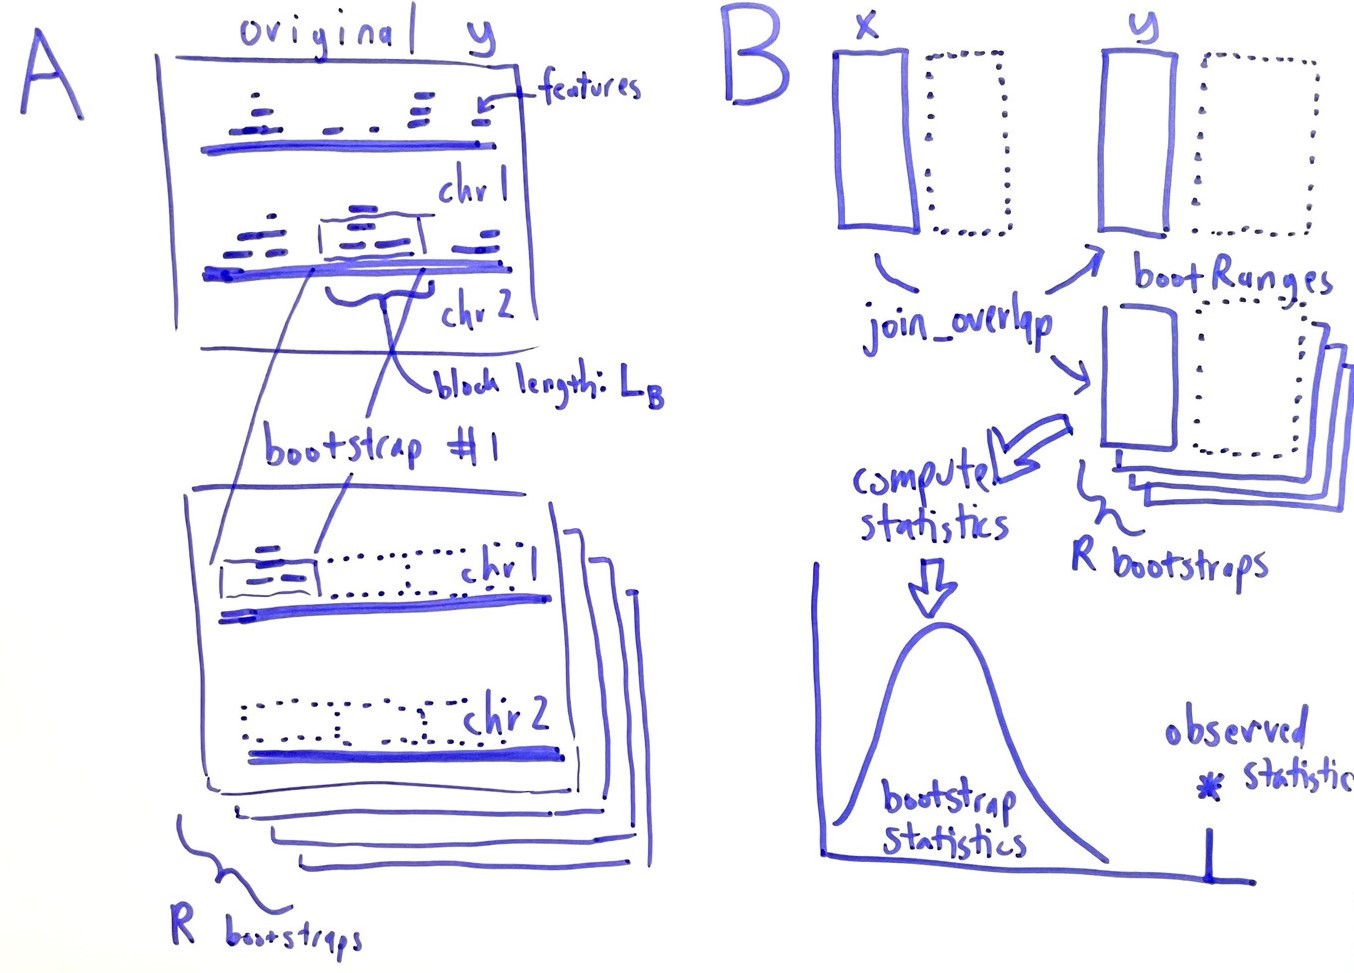 A
original y
features
chr1
chr2
block length: LB
bootstrap #1
chr1
chr2
R bootstraps
B
x
y
join_overlap
bootRanges
compute
statistics
R bootstraps
bootstrap
statistics
observed
* statistic